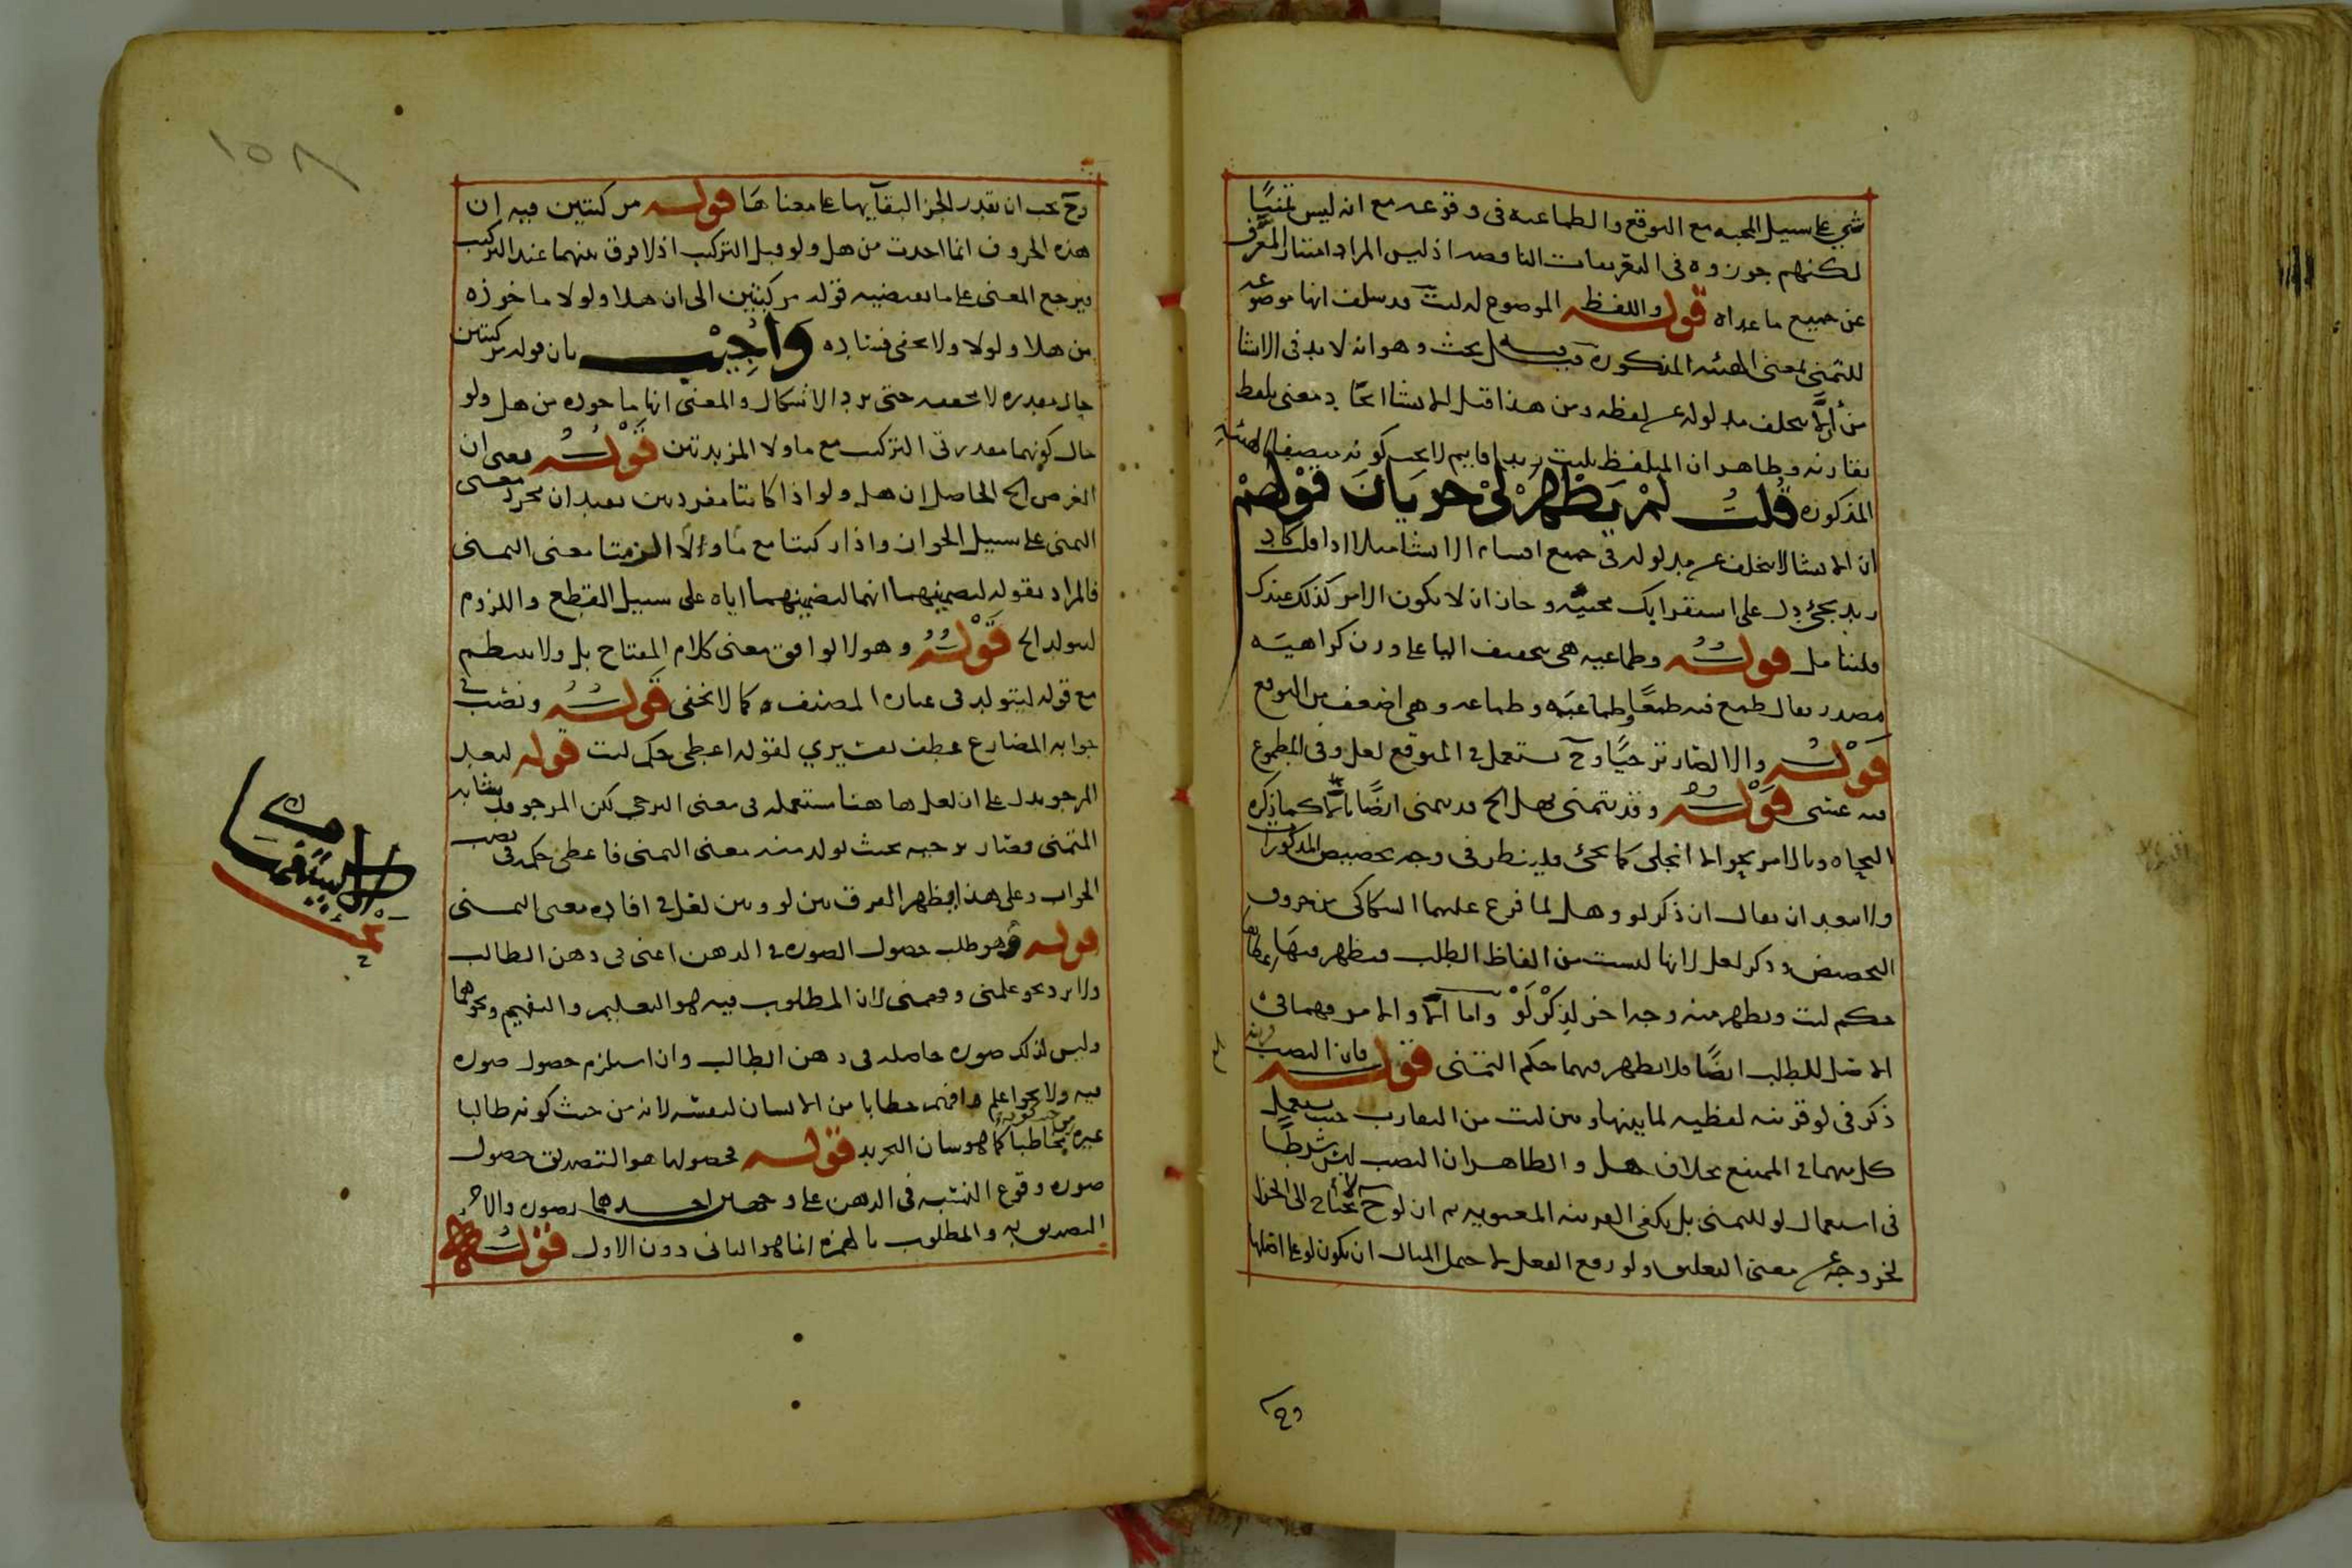 شئ على سبيل المحبه مع التوقع والطماعيه فى وقوعه مع انه ليس تمنيًا
لكنهم جوزوه فى التعريفات الناقصه اذ ليس المراد امتياز المعرَّف
عن جميع ما عداه قوله واللفظ الموضوع له ليت قد سلف انها موضوعه
للتمنى لمعنى الهيئه المذكوره بحث وهو انه لا بد فى الانشا
من ان لا يتخلف مدلوله عن لفظه ومن هذا قيل الانشا ايجاد معنى بلفظ
يقارنه وظاهر ان المتلفظ بليت زيدا قايم لا يجب كونه متصفا بالهيئه
المذكوره قلت لم يظهر لى جريان قولهم
ان الانشا لا يتخلف عن مدلوله فى جميع اقسام الانشا مثلا اذا قلت كاد
زيد يجئ دل على استقرابك مجيئه وجاز ان لا يكون الامر كذلك عندك
فليتامل قوله وطماعيه هى بتخفيف اليا على وزن كراهيه
مصدر يقال طمع فيه طمعًا وطماعيَه وطماعه وهى اضعف من التوقع
قوله والا لصار ترجيًا وح يستعمل فى المتوقع لعل وفى المطموع
فيه عسى قوله وقد يتمنى بهل الخ قد يتمنى ايضًا بالا كما ذكره
النحاه وبالامر نحو الا انجلى كما يجئ فلينظر فى وجه تخصيص المذكورات
ولا يبعد ان يقال ان ذكر لو وهل لما فرع عليهما السكاكى من حروف
التحضيض وذكر لعل لانها ليست من الفاظ الطلب فيظهر فيها
حكم ليت ويظهر منه وجه اخر لذكر لو واما الا والامر فهما فى
الاصل للطلب ايضًا فلا يظهر فيهما حكم التمنى قوله فان النصب
ذكر فى لو قرينه لفظيه لما بينها وبين ليت من التقارب حيث يستعمل
كل منهما فى الممتنع بخلاف هل والظاهر ان النصب ليس شرطًا
فى استعمال لو للتمنى بل يكفى القرينه المعنويه ثم ان لو ح لا تحتاج الى الجزا
لخروجه عن معنى التعليق ولو رفع الفعل لاحتمل المثال ان يكون لو على اصلها
وح
١٥٨
وح يجب ان يقدر الجزا لبقايها على معناها قوله مركبتين فيه ان
هذه الحروف انما اخذت من هل ولو قبل التركيب اذ لا فرق بينهما عند التركيب
فيرجع المعنى على ما يقتضيه قوله مركبتين الى ان هلا ولولا ماخوذه
من هلا ولولا ولا يخفى فساده وأجيب بان قوله مركبتين
حال مقدره لا محققه حتى يرد الاشكال والمعنى انها ماخوذه من هل ولو
حال كونهما مقدرتى التركيب مع ما ولا المزيدتين قوله يعنى ان
الغرض الخ الحاصل ان هل ولو اذا كانتا مفردتين يفيدان مجرد معنى
التمنى على سبيل الجواز واذا ركبتا مع ما ولا الزمتا معنى التمنى
فالمراد بقوله لتضمينهما انهما لتضمينهما اياه على سبيل القطع واللزوم
ليتولد الخ قوله وهو لا يوافق معنى كلام المفتاح بل ولا ينتظم
مع قوله ليتولد فى عباره المصنف كما لا يخفى قوله ونصب
جوابه المضارع عطف تفسيرى لقوله اعطى حكم ليت قوله لبعد
المرجو يدل على ان لعل ها هنا مستعمله فى معنى الترجى لكن المرجو قد شابه
المتمنى فصار ترجيه بحيث تولد منه معنى التمنى فاعطى حكمه فى نصب
الجواب وعلى هذا يظهر الفرق بين لو وبين لعل فى افاده معنى التمنى
قوله وهو طلب حصول الصوره فى الذهن اعنى فى ذهن الطالب
ولا يرد نحو علمنى وفهمنى لان المطلوب فيه هو التعليم والتفهيم ونحوهما
وليس لذلك صوره حاصله فى ذهن الطالب وان استلزم حصول صوره
فيه ولا نحو اعلم وافهم خطابا من الانسان لنفسه لانه من حيث كونه طالبا
غيره من حيث كونه مخاطبا كما هو شان التجريد قوله فحصولها هو التصديق حصول
صوره وقوع النسبه فى الذهن على وجهين احدهما تصور والاخر
التصديق به والمطلوب بالهمزه انما هو الثانى دون الاول قوله